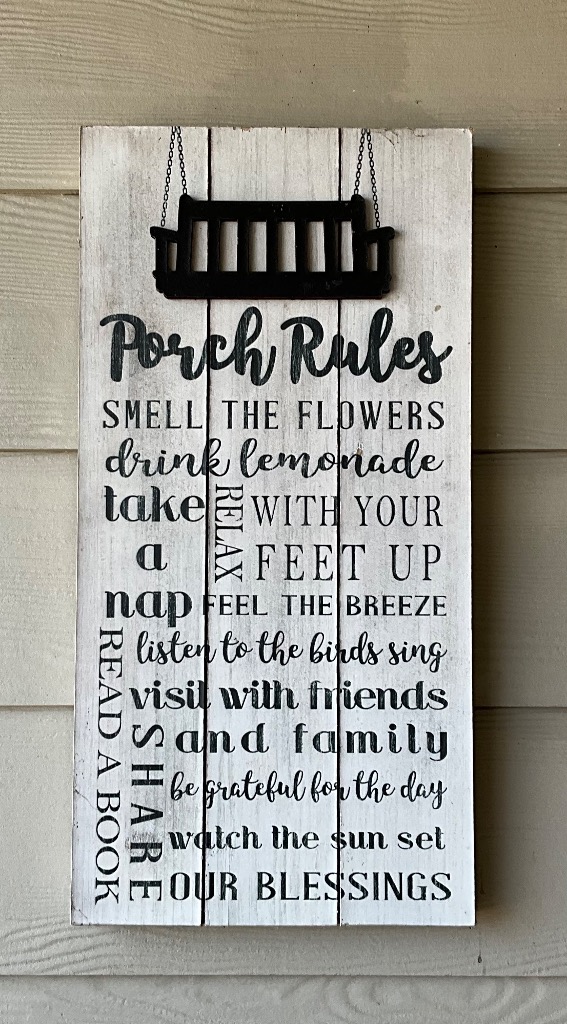 Porch Rules
SMELL THE FLOWERS
drink lemonade
take
a
nap
RELAX
WITH YOUR
FEET UP
FEEL THE BREEZE
READ A BOOK
listen to the birds sing
visit with friends
and family
be grateful for the day
watch the sun set
SHARE
OUR BLESSINGS